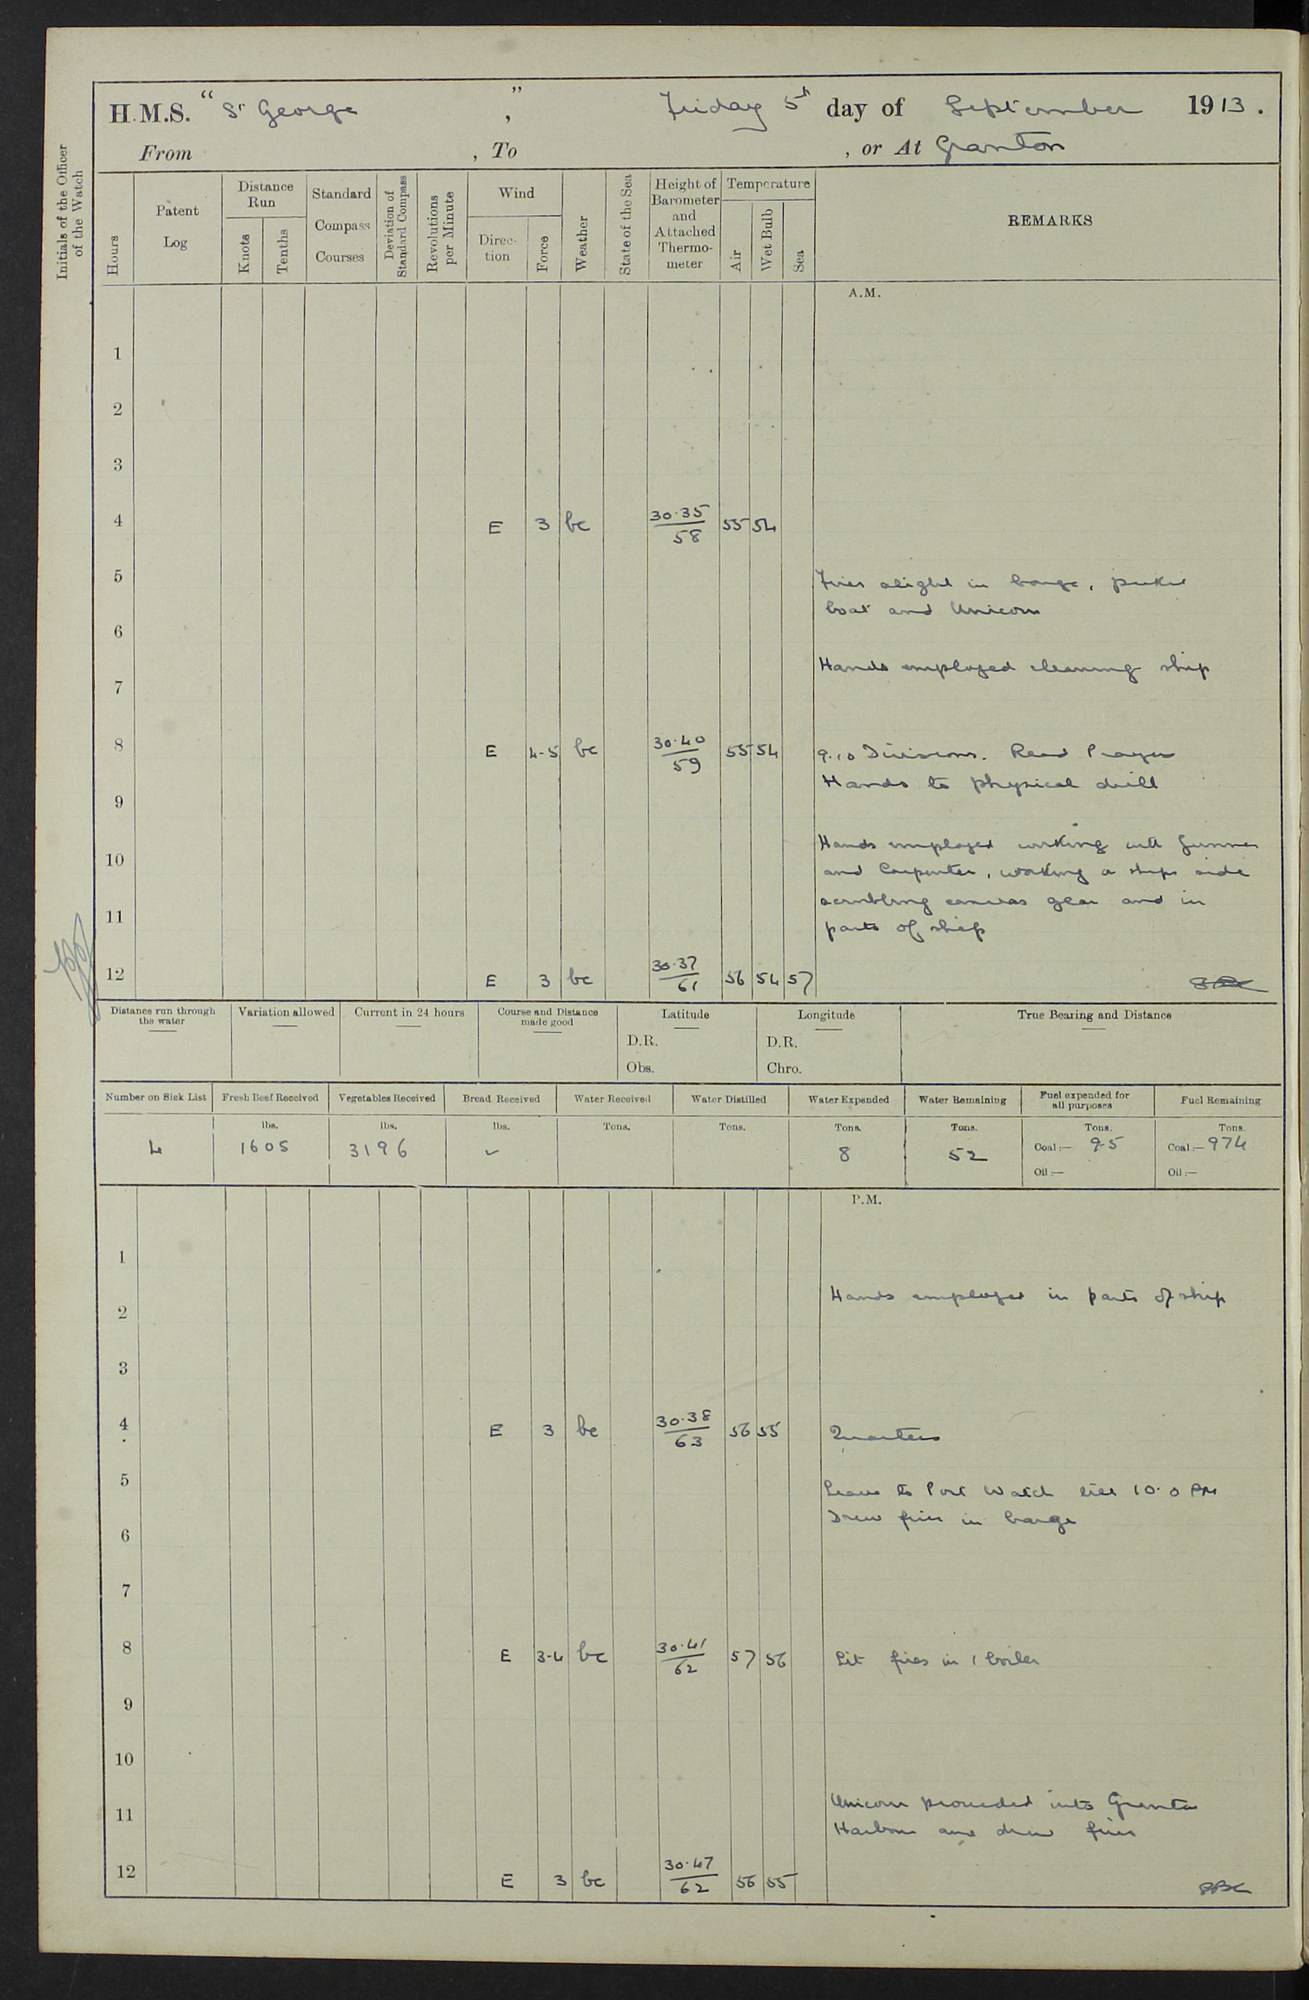 H.M.S. "St George", Friday 5th day of September 1913.
From , To , or At Granton
Initials of the Officer of the Watch
Hours
Patent Log
Distance Run
Knots
Tenths
Standard Compass Courses
Deviation of Standard Compass
Revolutions per Minute
Wind
Direction
Force
Weather
State of the Sea
Height of Barometer and Attached Thermometer
Temperature
Air
Wet Bulb
Sea
REMARKS
A.M.
1
2
3
4 E 3 bc 30.35/58 55 54
5 Fires alight in barge, picket
boat and Unicorn
6
Hands employed cleaning ship
7
8 E 4-5 bc 30.40/59 55 54 9.10 Divisions. Read Prayers
Hands to physical drill
9
Hands employed working with Gunner
10 and Carpenter, working a ships side
scrubbing canvas gear and in
11 parts of ship
12 E 3 bc 30.37/61 56 54 57
Distance run through the water
Variation allowed
Current in 24 hours
Course and Distance made good
Latitude
D.R.
Obs.
Longitude
D.R.
Chro.
True Bearing and Distance
Number on Sick List
4
Fresh Beef Received
lbs.
1605
Vegetables Received
lbs.
3196
Bread Received
lbs.
✓
Water Received
Tons.
Water Distilled
Tons.
Water Expended
Tons.
8
Water Remaining
Tons.
52
Fuel expended for all purposes
Tons.
Coal:— 9.5
Oil:—
Fuel Remaining
Tons.
Coal:— 974
Oil:—
P.M.
1
Hands employed in parts of ship
2
3
4 E 3 bc 30.38/63 56 55 Quarters
5 Leave to Port Watch till 10.0 PM
Drew fires in barge
6
7
8 E 3-4 bc 30.41/62 57 56 Lit fires in 1 boiler
9
10
Unicorn proceeded into Granton
11 Harbour and drew fires
12 E 3 bc 30.47/62 56 55